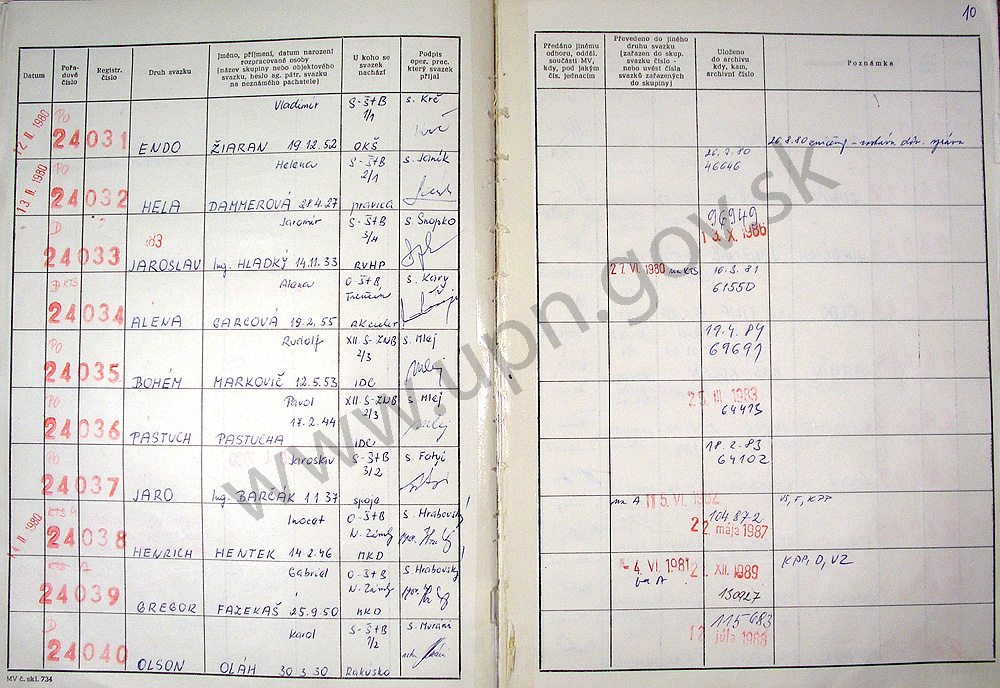 10
Datum
Pořadové číslo
Registr. číslo
Druh svazku
Jméno, příjmení, datum narození
rozpracované osoby
(název skupiny nebo objektového
svazku, heslo ag. pátr. svazku
na neznámého pachatele)
U koho se
svazek
nachází
Podpis
oper. prac.
který svazek
přijal
Předáno jinému
odboru, odděl.
součásti MV,
kdy, pod jakým
čís. jednacím
Převedeno do jiného
druhu svazku
(zařazen do skup.
svazku číslo -
nebo uvést čísla
svazků zařazených
do skupiny)
Uloženo
do archivu
kdy, kam,
archivní číslo
Poznámka
12 II. 1980
PO
24031
ENDO
Vladimír
ŽIARAN 19.12.52
S-ŠtB
1/1
OKŠ
s. Krč
26.8.80
13 II. 1980
PO
24032
HELA
Helena
DAMMEROVÁ 28.4.27
S-ŠtB
2/1
pravica
46646
D
24033
JAROSLAV
Jaromír
Ing. HLADKÝ 14.11.33
S-ŠtB
3/4
RVHP
s. Snopko
96949
13. X. 1986
D KTS
24034
ALENA
Alena
GARCOVÁ 19.2.55
O-ŠtB,
Trenčín
27. VI. 1980 na KTS
10.3.81
61550
PO
24035
BOHÉM
Rudolf
MARKOVIČ 12.5.53
XII. S-ZNB
2/3
IDC
s. Mlej
19.4.84
69691
PO
24036
PASTUCH
Pavol
17.2.44
PASTUCHA
XII. S-ZNB
2/3
IDC
s. Mlej
III 1983
64413
PO
24037
JARO
Jaroslav
Ing. BARČÁK 1.1.37
S-ŠtB
3/2
spoje
18.2.83
64102
14 II 1980
KTS A
24038
HENRICH
HENTEK 14.2.46
O-ŠtB
N. Zámky
MKD
s. Hrabovský
na A
15. VI. 1982
104.872
22 mája 1987
VS, F, KPP
24039
GREGOR
Gabriel
FAZEKAŠ 25.9.50
O-ŠtB
N. Zámky
MKD
s. Hrabovský
4. VI. 1981
XII. 1989
130927
KPP, D, VZ
D
24040
OLSON
Karol
OLÁH 30.3.30
S-ŠtB
1/2
Rakúsko
s. Muráni
115683
júla 1988
MV č. skl. 734
www.upn.gov.sk